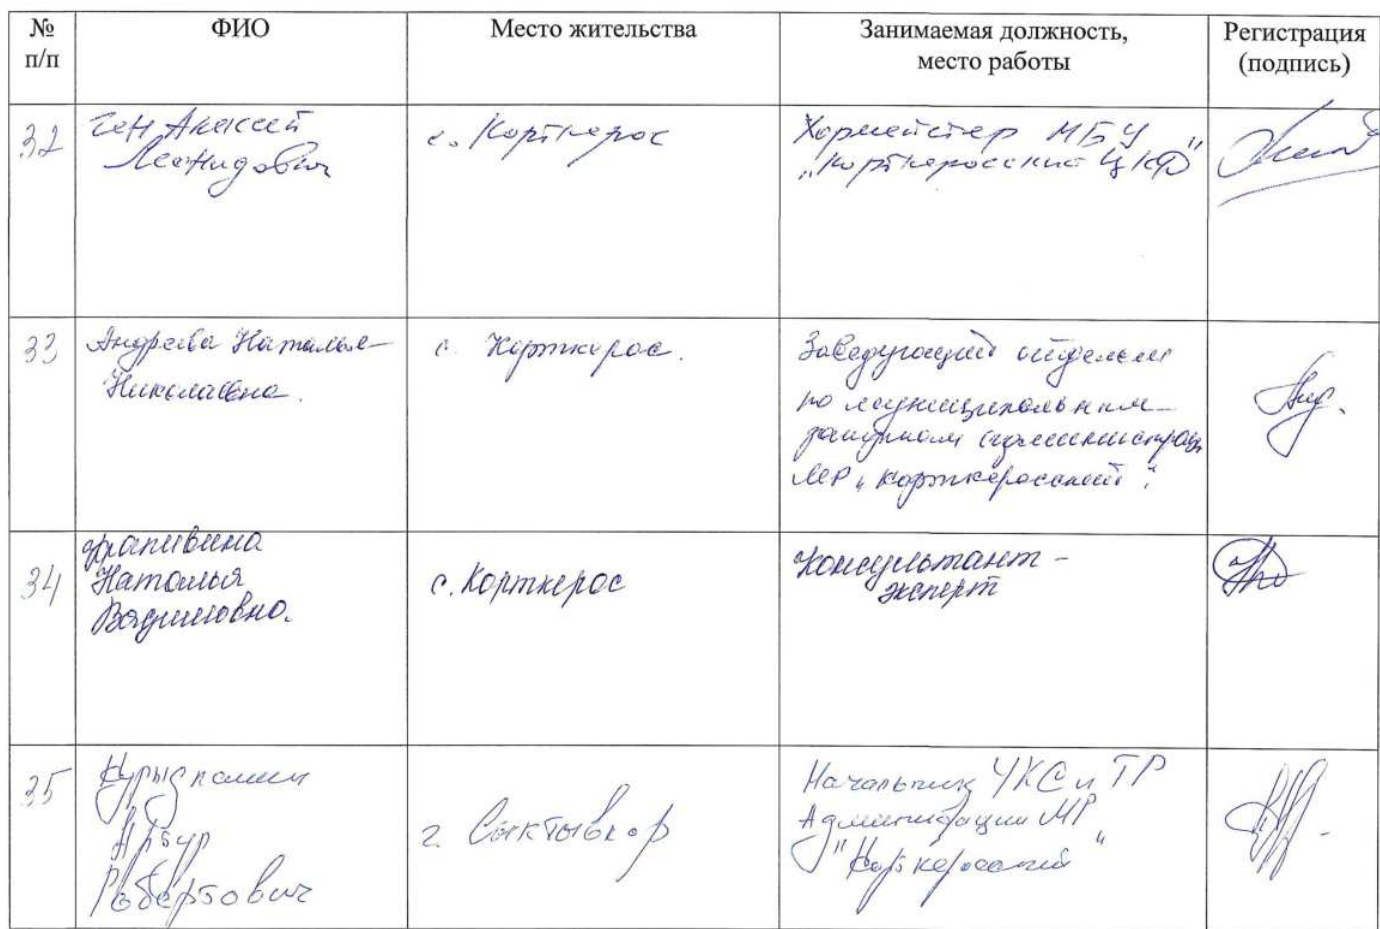 №
п/п
ФИО
Место жительства
Занимаемая должность,
место работы
Регистрация
(подпись)
32
Ген Алексей
Леонидович
с. Корткерос
Хормейстер МБУ
„Корткеросский ЦКД"
33
Андреева Наталья
Николаевна.
с. Корткерос.
Заведующий отделом
по муниципальным
МР „Корткеросский".
34
Крапивина
Наталья
Вадимовна.
с. Корткерос
Консультант -
эксперт
35
Артур
Робертович
г. Сыктывкар
Начальник УКС и ТР
Администрации МР
"Корткеросский"